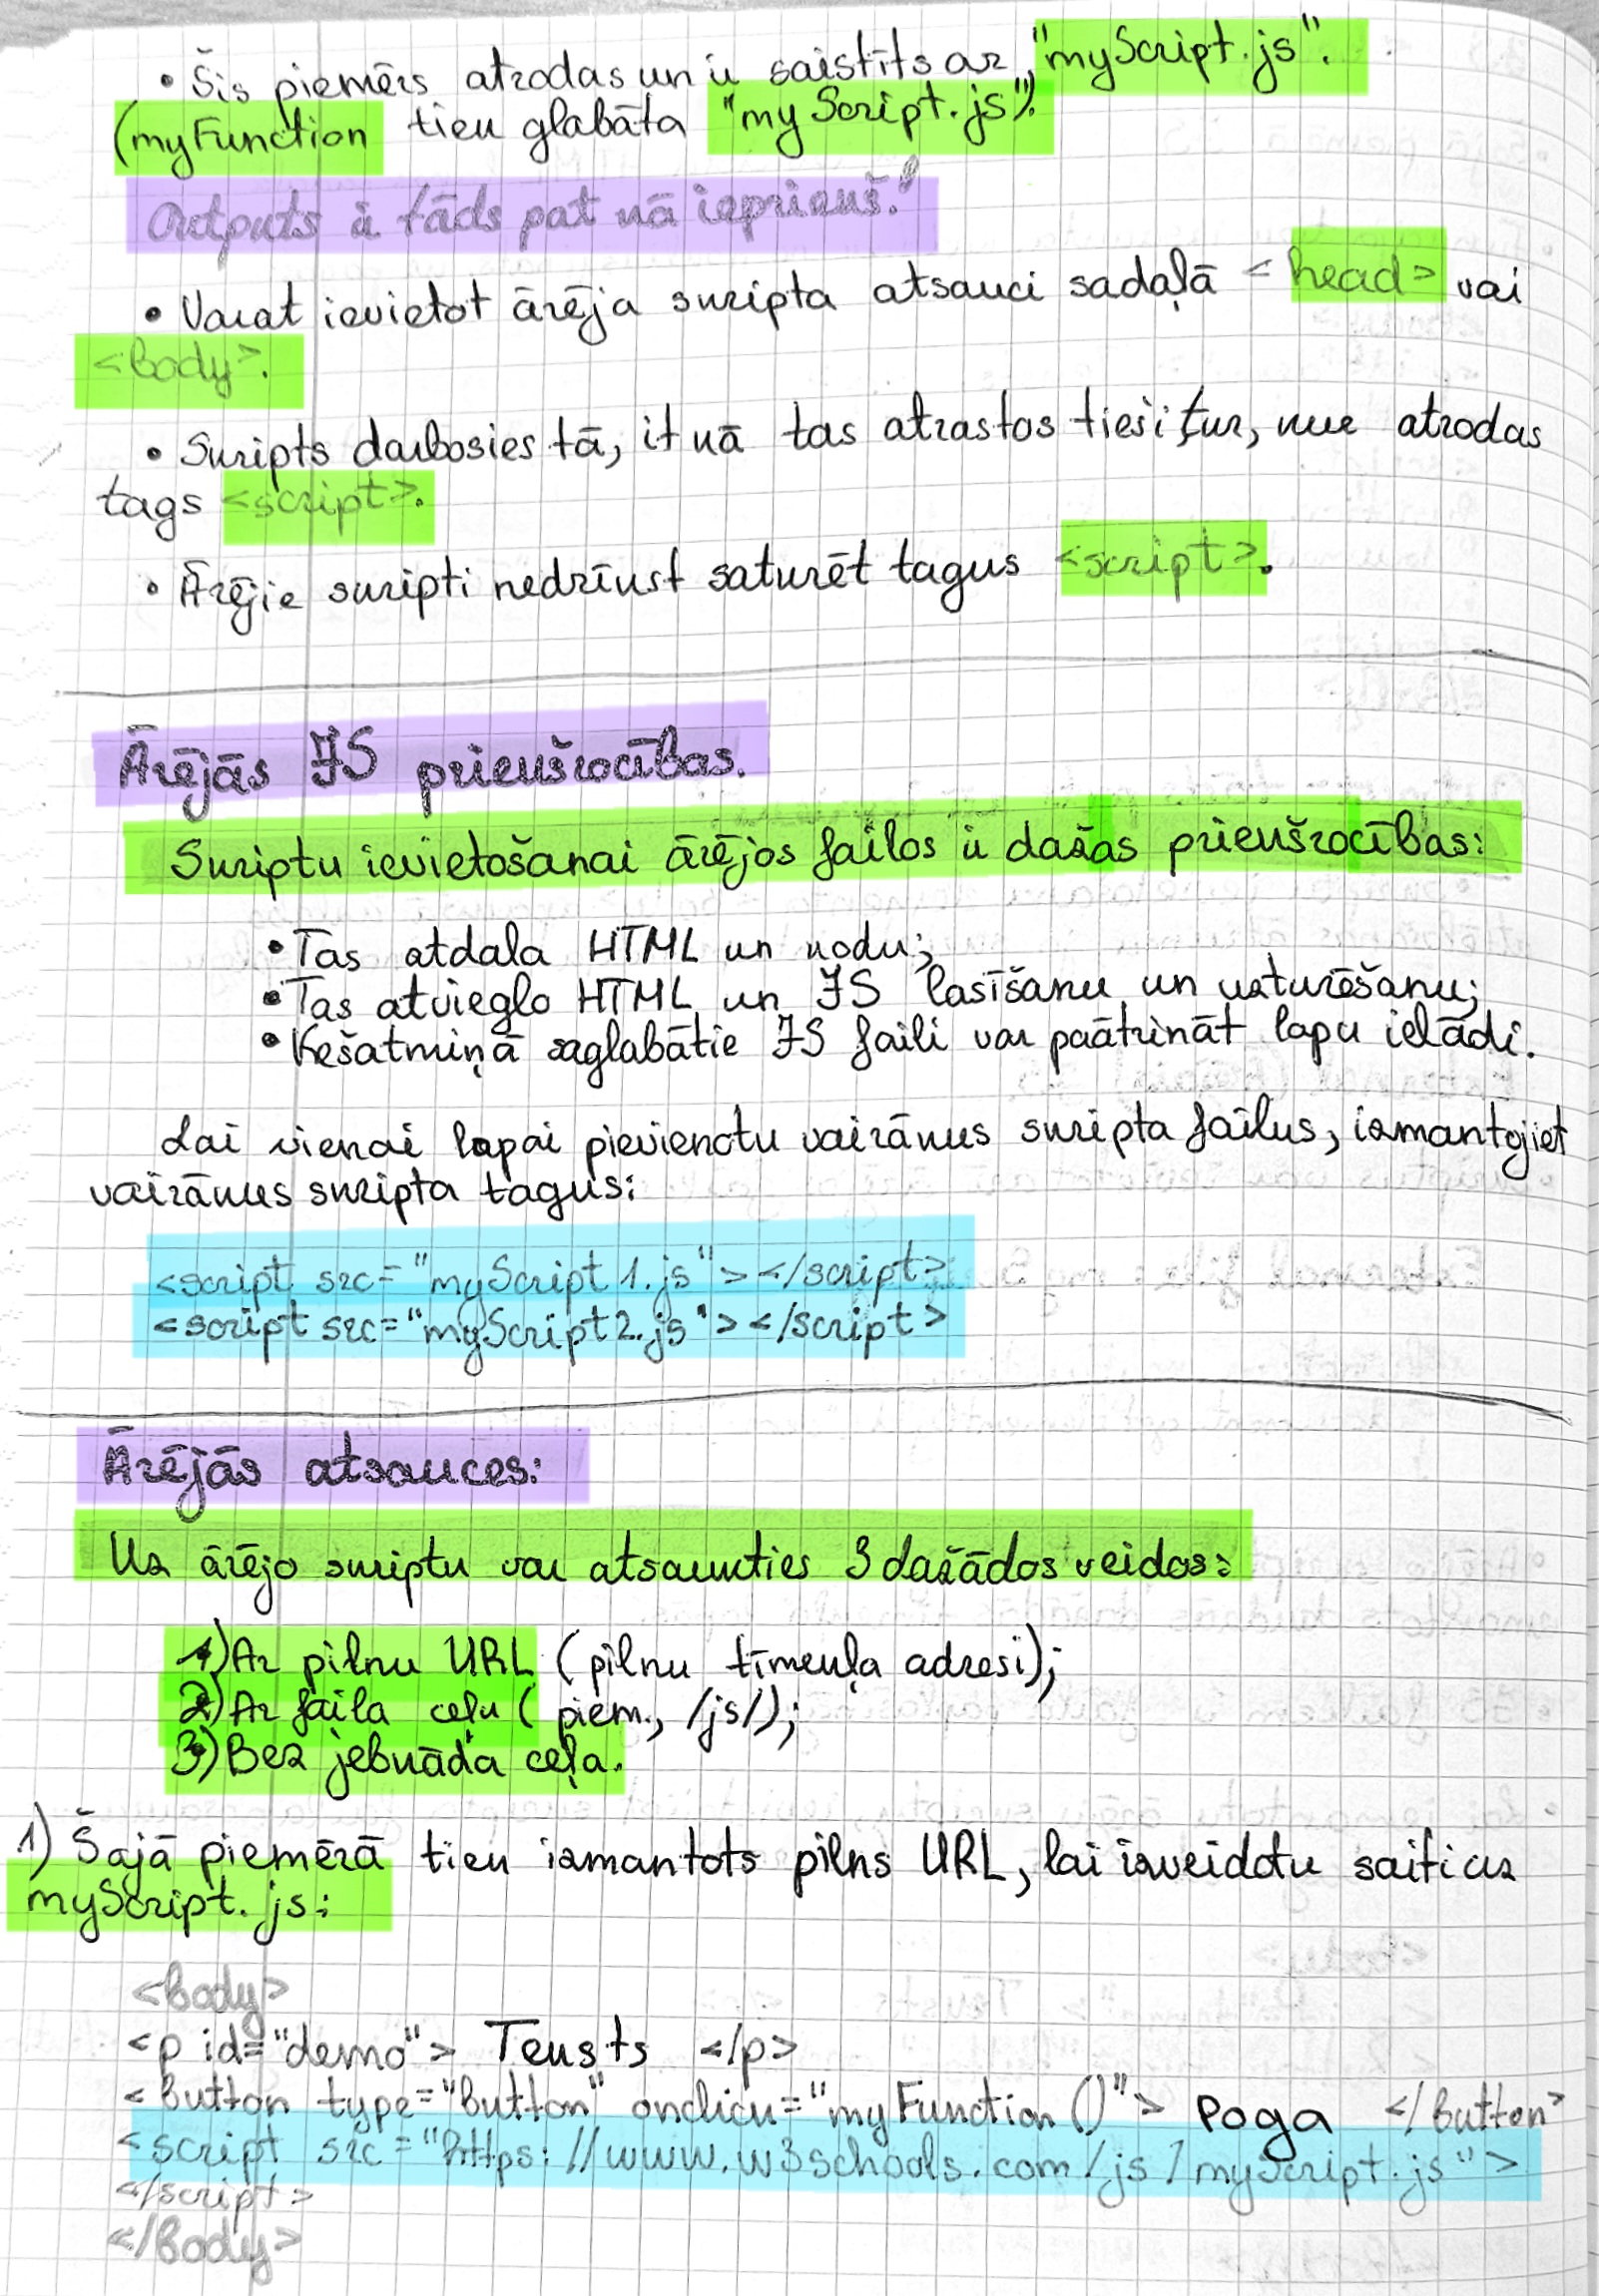 • Šis piemērs atrodas un ir saistīts ar "myScript.js".
(myFunction tiek glabāta "myScript.js").
Outputs ir tāds pat kā iepriekš!
• Varat ievietot ārēja skripta atsauci sadaļā <head> vai
<body>.
• Skripts darbosies tā, it kā tas atrastos tieši tur, kur atrodas
tags <script>.
• Ārējie skripti nedrīkst saturēt tagus <script>.
Ārējās JS priekšrocības.
Skriptu ievietošanai ārējos failos ir dažas priekšrocības:
• Tas atdala HTML un kodu;
• Tas atvieglo HTML un JS lasīšanu un uzturēšanu;
• Kešatmiņā saglabātie JS faili var paātrināt lapu ielādi.
Lai vienai lapai pievienotu vairākus skripta failus, izmantojiet
vairākus skripta tagus:
<script src="myScript1.js"></script>
<script src="myScript2.js"></script>
Ārējās atsauces:
Uz ārējo skriptu var atsaukties 3 dažādos veidos:
1) Ar pilnu URL (pilnu tīmekļa adresi);
2) Ar faila ceļu (piem., /js/);
3) Bez jebkāda ceļa.
1) Šajā piemērā tiek izmantots pilns URL, lai izveidotu saiti uz
myScript.js:
<body>
<p id="demo"> Teksts </p>
<button type="button" onclick="myFunction()"> Poga </button>
<script src="https://www.w3schools.com/js/myScript.js">
</script>
</body>